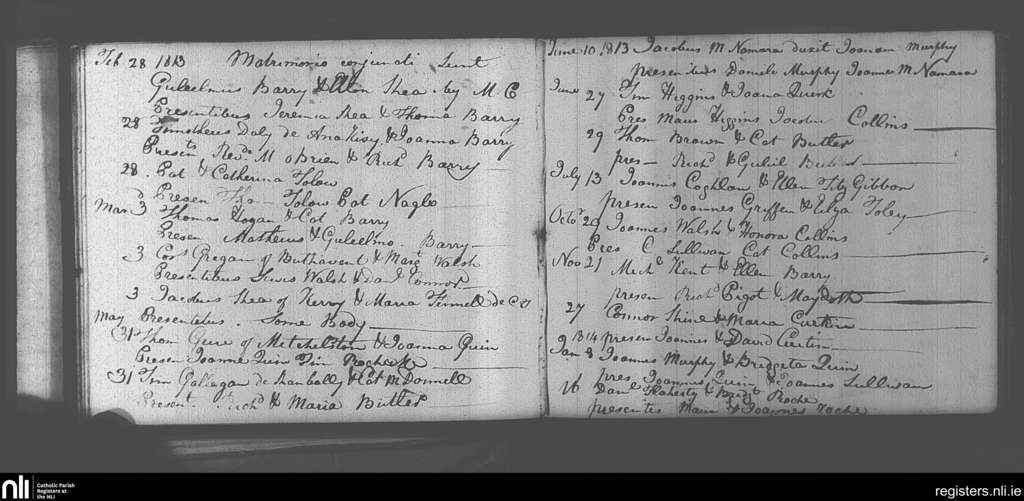 Feb 28 1813 Matrimonio conjuncti Sunt
Gulielmus Barry & Ellen Shea by M C
Presentibus Jeremia Shea & Thoma Barry
28 Timotheus Daly de Anakisy & Joanna Barry
Presents Revd. M O Brien & Richd Barry
28. Pat & Catherina
Presen Pat Nagle
Mar. 3 Thomas Hogan & Cat Barry
Presen Matheus & Gulielmo. Barry
3 Cors Gregan of Buthavent & Marg Walsh
Presentibus Lewis Walsh & Dad Connor
3 Jacobus Shea of Kerry & Maria de
May Presentibus. Some Body
31 Thom of Mitchelston & Joanna Quin
Presen Joanne Quin
31 Tim Gallagan de & Cat McDonnell
Present. Richd & Maria Butler
June 10 1813 Jacobus McNamara duxit Joanam Murphy
presentibus Daniele Murphy Joanne McNamara
June 27 Tim Higgins & Joana Quirk
Pres Maur Higgins Jacobo Collins
29 Thom Brown & Cat Butler
pres Richd & Guliel
July 13 Joannes Coghlan & Ellen Fitz Gibbon
presen Joannes Griffin & Eliza Foley
Octo 20 Joannes Walsh & Honora Collins
Pres C Sullivan Cat Collins
Nov 21 Michl Kent & Ellen Barry
presen Richd Pigot &
27 Connor Shine & Maria Curtin
presen Joannes & David Curtin
1814 Jan 8 Joannes Murphy & Bridgeta Quin
pres Joannes Quin & Joannes Sullivan
16 Danl Flaherty & Bridt Roche
presentes Maur & Joannes Roche
nli Catholic Parish
Registers at
the NLI
registers.nli.ie